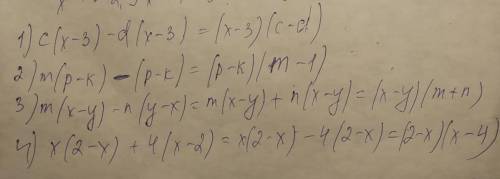 1) c(x-3)-d(x-3) = (x-3)(c-d)
2) m(p-k) - (p-k) = (p-k)(m-1)
3) m(x-y)-n(y-x) = m(x-y)+n(x-y) = (x-y)(m+n)
4) x(2-x) + 4(x-2) = x(2-x) - 4(2-x) = (2-x)(x-4)